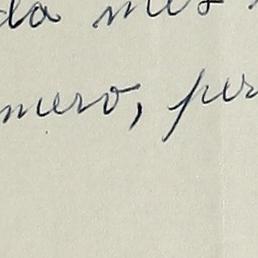 da mes
mero, per